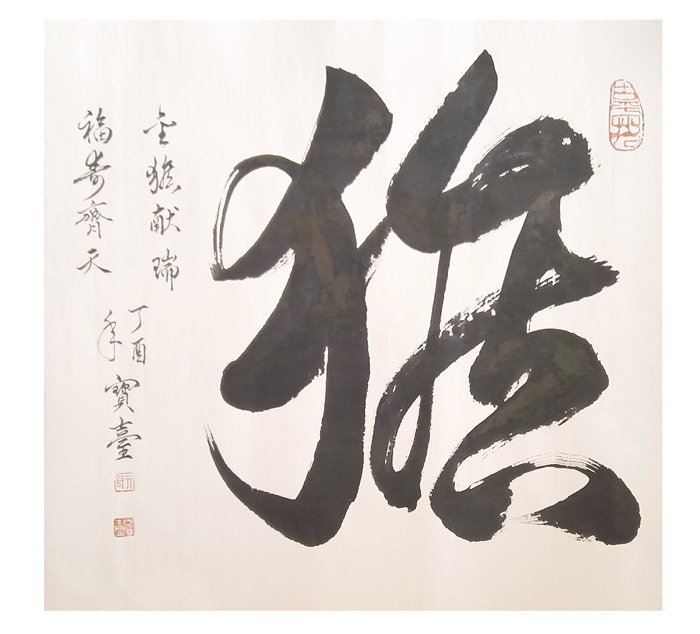 猴
金猴献瑞
福寿齊天
丁酉
年
寶臺